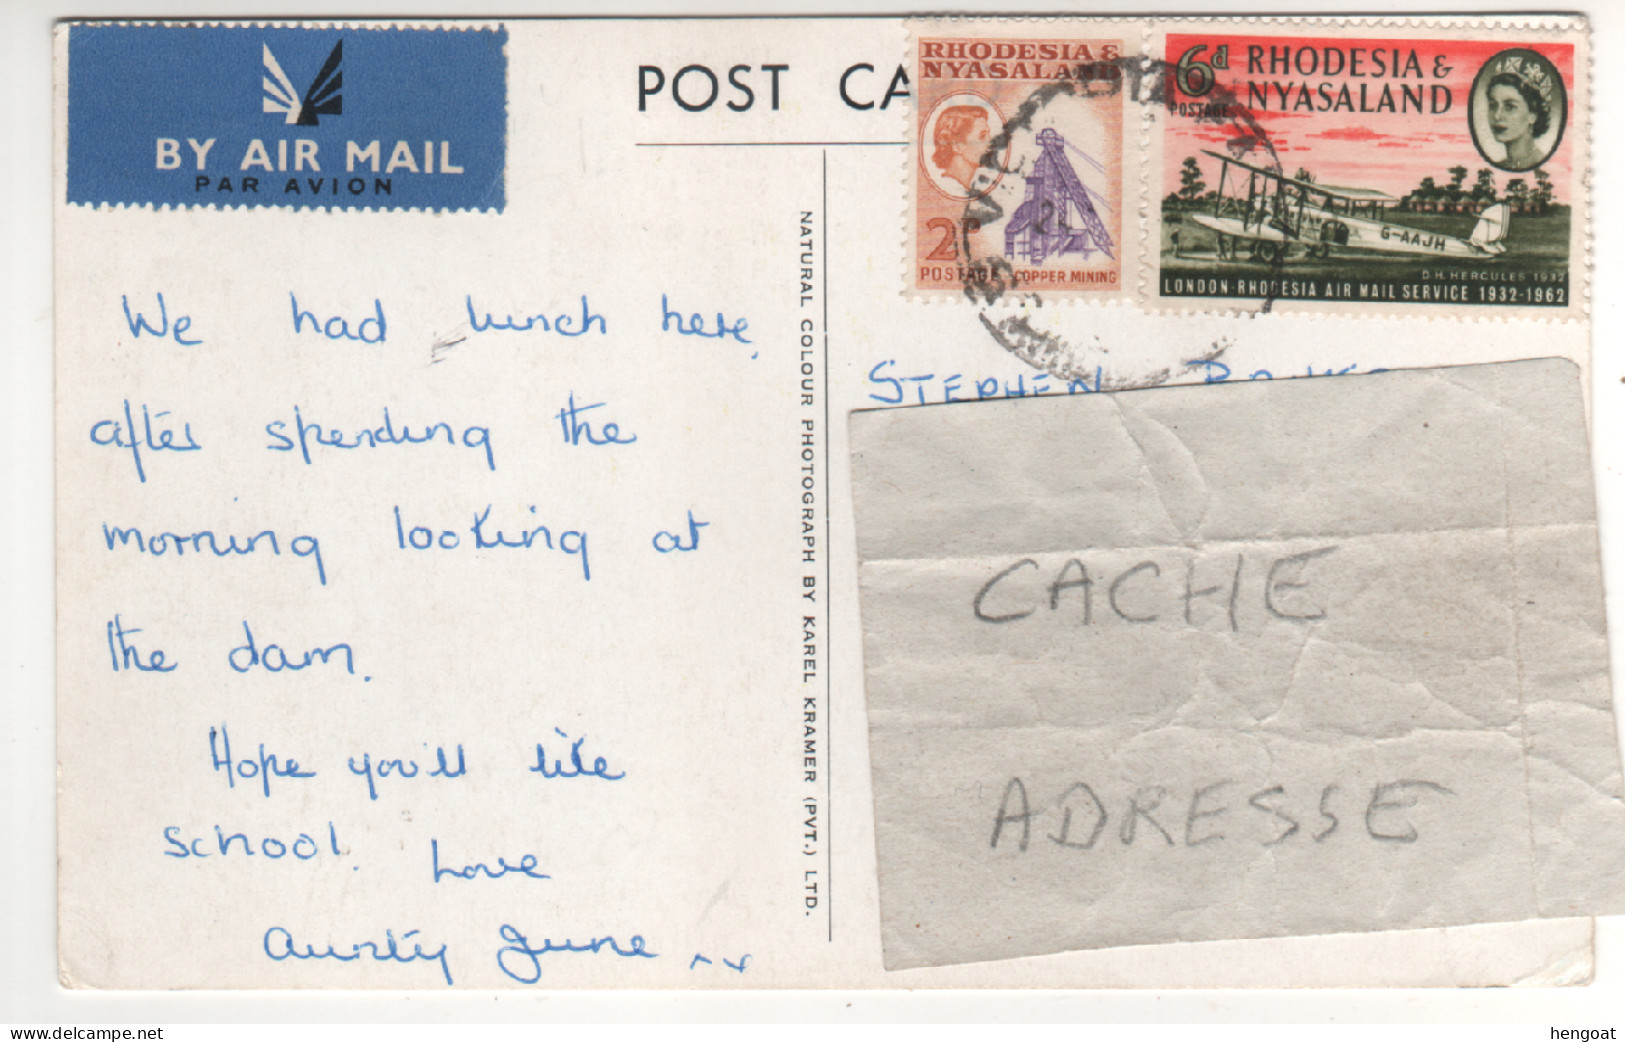 BY AIR MAIL
PAR AVION
POST CA
RHODESIA &
NYASALAND
2d
POSTAGE COPPER MINING
6d
POSTAGE
RHODESIA &
NYASALAND
G-AAJH
D.H. HERCULES 1932
LONDON-RHODESIA AIR MAIL SERVICE 1932-1962
We had lunch here,
after spending the
morning looking at
the dam.
Hope you'll like
school. Love
Aunty June
NATURAL COLOUR PHOTOGRAPH BY KAREL KRAMER (PVT.) LTD.
STEPHEN
CACHE
ADRESSE
hengoat